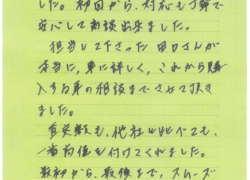 した。初回から、対応も丁寧で
安心して相談出来ました。
担当して下さった田口さんが
本当に、車に詳しく、これから購
入する車の相談までさせて頂き
ました。
買取額も、他社と比べても、
一番高値を付けてくれました。
最初から、最後まで、スムーズ